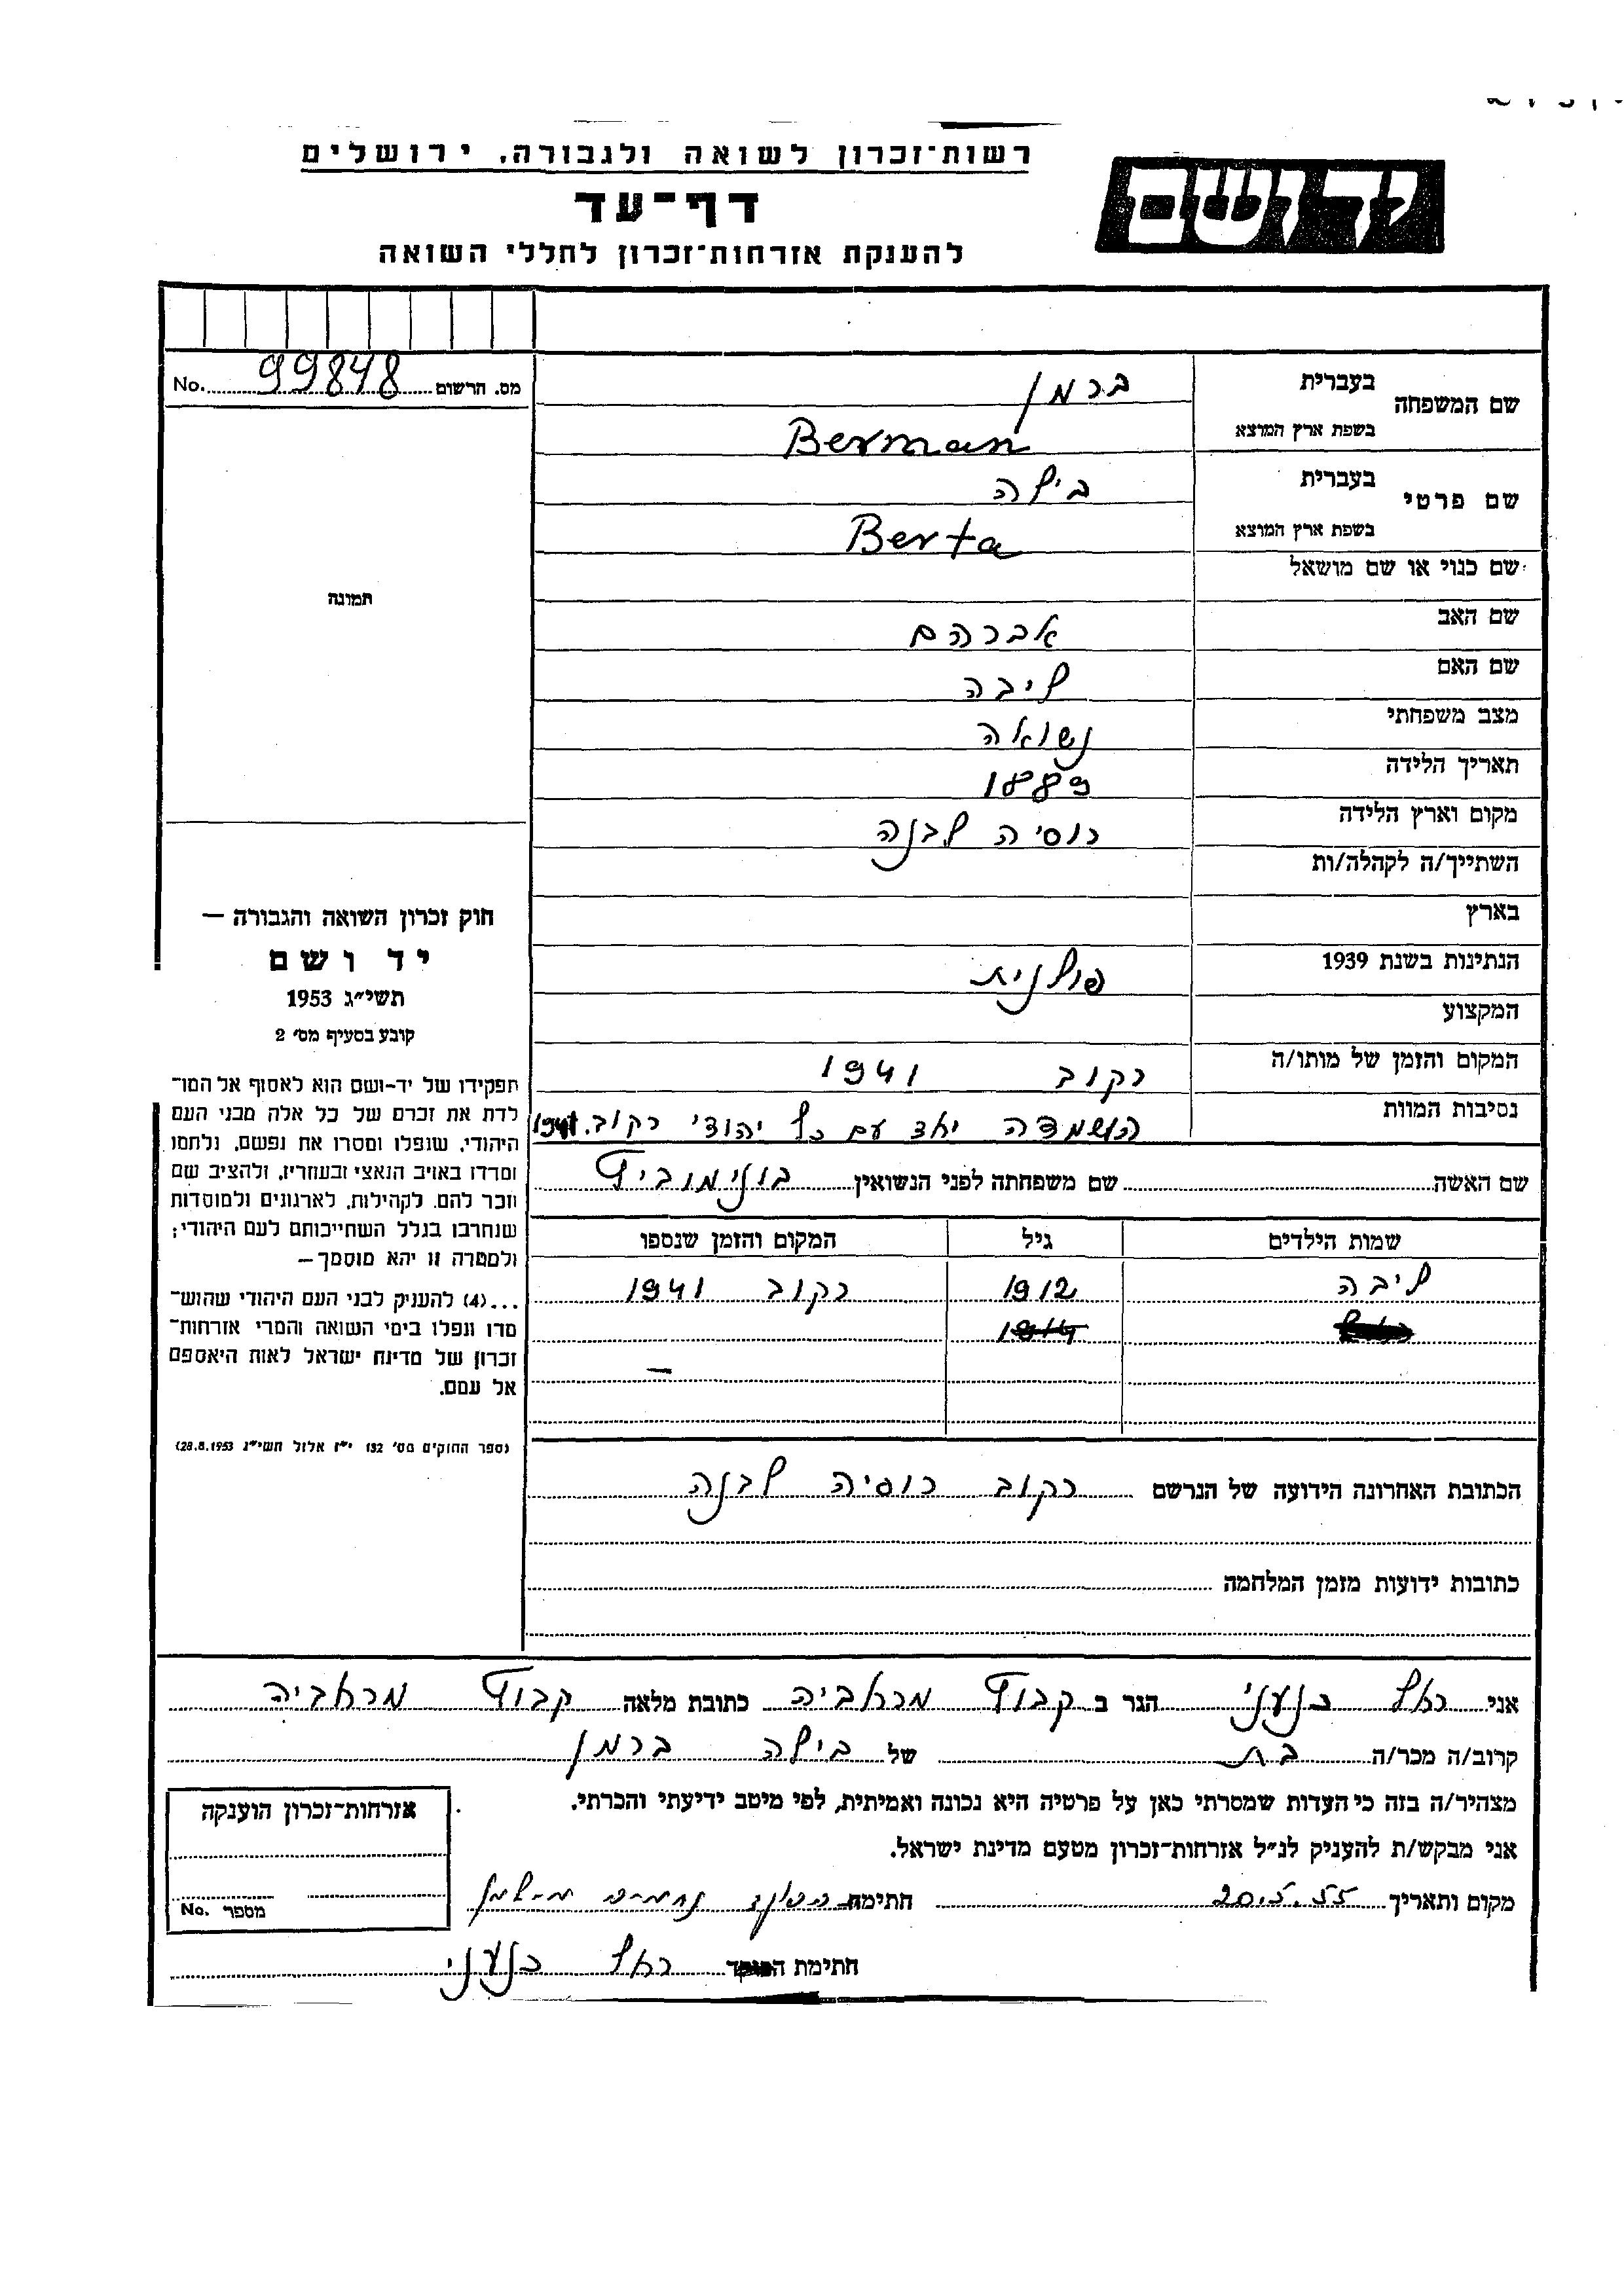 רשות־זכרון לשואה ולגבורה, ירושלים
יד ושם
דף־עד
להענקת אזרחות־זכרון לחללי השואה
מס. הרשום 99848 No.
שם המשפחה
בעברית ברמן
בשפת ארץ המוצא Berman
שם פרטי
בעברית בילה
בשפת ארץ המוצא Berta
שם כנוי או שם מושאל
שם האב אברהם
שם האם ליבה
מצב משפחתי נשואה
תאריך הלידה 1889
מקום וארץ הלידה רוסיה לבנה
השתייך/ה לקהלה/ות
בארץ
הנתינות בשנת 1939 פולנית
המקצוע
המקום והזמן של מותו/ה רקוב 1941
נסיבות המוות הושמדה יחד עם כל יהודי רקוב. 1941
שם האשה שם משפחתה לפני הנשואין
שמות הילדים גיל המקום והזמן שנספו
ליבה 1912 רקוב 1941
הכתובת האחרונה הידועה של הנרשם רקוב רוסיה לבנה
כתובות ידועות מזמן המלחמה
תמונה
חוק זכרון השואה והגבורה —
יד ושם
תשי״ג 1953
קובע בסעיף מס׳ 2
תפקידו של יד־ושם הוא לאסוף אל המו־
לדת את זכרם של כל אלה מבני העם
היהודי, שנפלו ומסרו את נפשם, נלחמו
ומרדו באויב הנאצי ובעוזריו, ולהציב שם
וזכר להם, לקהילות, לארגונים ולמוסדות
שנחרבו בגלל השתייכותם לעם היהודי;
ולמטרה זו יהא מוסמך—
...(4) להעניק לבני העם היהודי שהוש־
מדו ונפלו בימי השואה והמרי אזרחות־
זכרון של מדינת ישראל לאות היאספם
אל עמם.
(ספר החוקים מס׳ 132 י״ז אלול תשי״ג 28.8.1953)
אני רחל כנעני הגר ב קבוץ מרחביה כתובת מלאה קבוץ מרחביה
קרוב/ה מכר/ה בת של בילה ברמן
מצהיר/ה בזה כי העדות שמסרתי כאן על פרטיה היא נכונה ואמיתית, לפי מיטב ידיעתי והכרתי.
אני מבקש/ת להעניק לנ״ל אזרחות־זכרון מטעם מדינת ישראל.
מקום ותאריך 20.5.55 חתימת
חתימת רחל כנעני
אזרחות־זכרון הוענקה
מספר No.